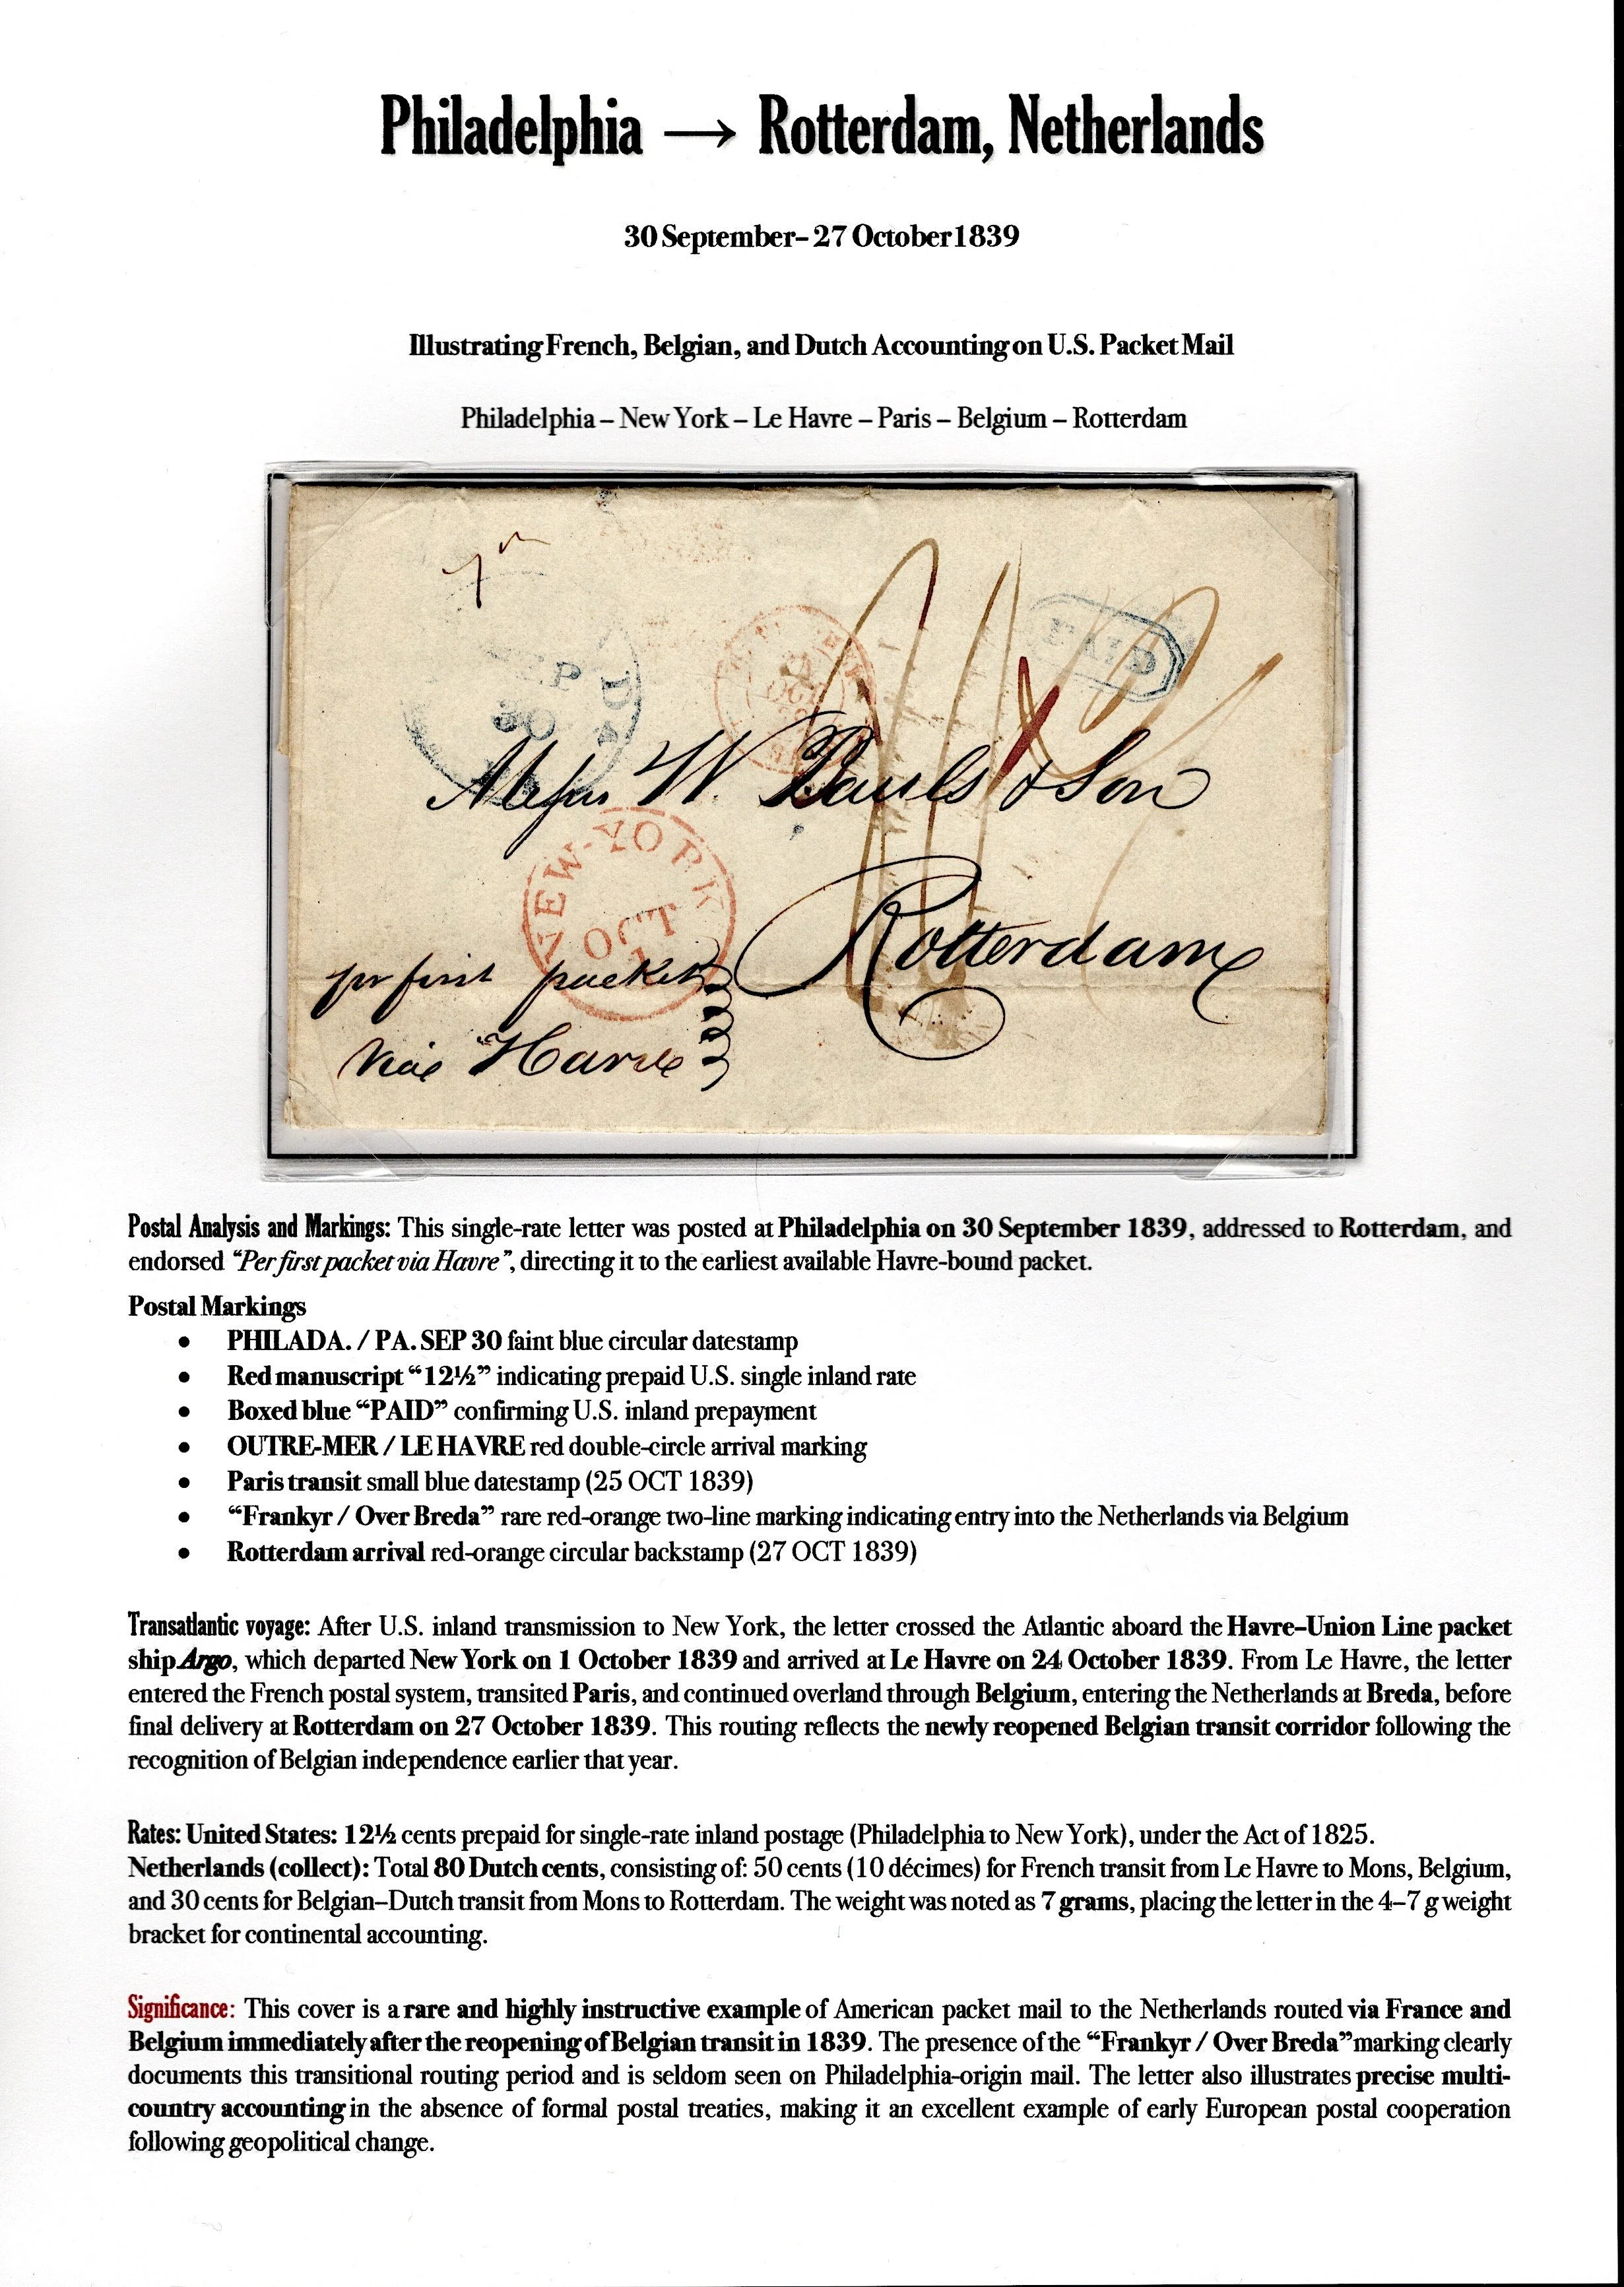 Philadelphia → Rotterdam, Netherlands
30 September– 27 October 1839
Illustrating French, Belgian, and Dutch Accounting on U.S. Packet Mail
Philadelphia – New York – Le Havre – Paris – Belgium – Rotterdam
SEP
30
PAID
Messrs W. Bauls & Son
NEW-YORK
OCT
1
Rotterdam
pr first packet
via Havre
Postal Analysis and Markings: This single-rate letter was posted at Philadelphia on 30 September 1839, addressed to Rotterdam, and
endorsed “Per first packet via Havre”, directing it to the earliest available Havre-bound packet.
Postal Markings
• PHILADA. / PA. SEP 30 faint blue circular datestamp
• Red manuscript “12½” indicating prepaid U.S. single inland rate
• Boxed blue “PAID” confirming U.S. inland prepayment
• OUTRE-MER / LE HAVRE red double-circle arrival marking
• Paris transit small blue datestamp (25 OCT 1839)
• “Frankyr / Over Breda” rare red-orange two-line marking indicating entry into the Netherlands via Belgium
• Rotterdam arrival red-orange circular backstamp (27 OCT 1839)
Transatlantic voyage: After U.S. inland transmission to New York, the letter crossed the Atlantic aboard the Havre–Union Line packet
ship Argo, which departed New York on 1 October 1839 and arrived at Le Havre on 24 October 1839. From Le Havre, the letter
entered the French postal system, transited Paris, and continued overland through Belgium, entering the Netherlands at Breda, before
final delivery at Rotterdam on 27 October 1839. This routing reflects the newly reopened Belgian transit corridor following the
recognition of Belgian independence earlier that year.
Rates: United States: 12½ cents prepaid for single-rate inland postage (Philadelphia to New York), under the Act of 1825.
Netherlands (collect): Total 80 Dutch cents, consisting of: 50 cents (10 décimes) for French transit from Le Havre to Mons, Belgium,
and 30 cents for Belgian–Dutch transit from Mons to Rotterdam. The weight was noted as 7 grams, placing the letter in the 4–7 g weight
bracket for continental accounting.
Significance: This cover is a rare and highly instructive example of American packet mail to the Netherlands routed via France and
Belgium immediately after the reopening of Belgian transit in 1839. The presence of the “Frankyr / Over Breda” marking clearly
documents this transitional routing period and is seldom seen on Philadelphia-origin mail. The letter also illustrates precise multi-
country accounting in the absence of formal postal treaties, making it an excellent example of early European postal cooperation
following geopolitical change.